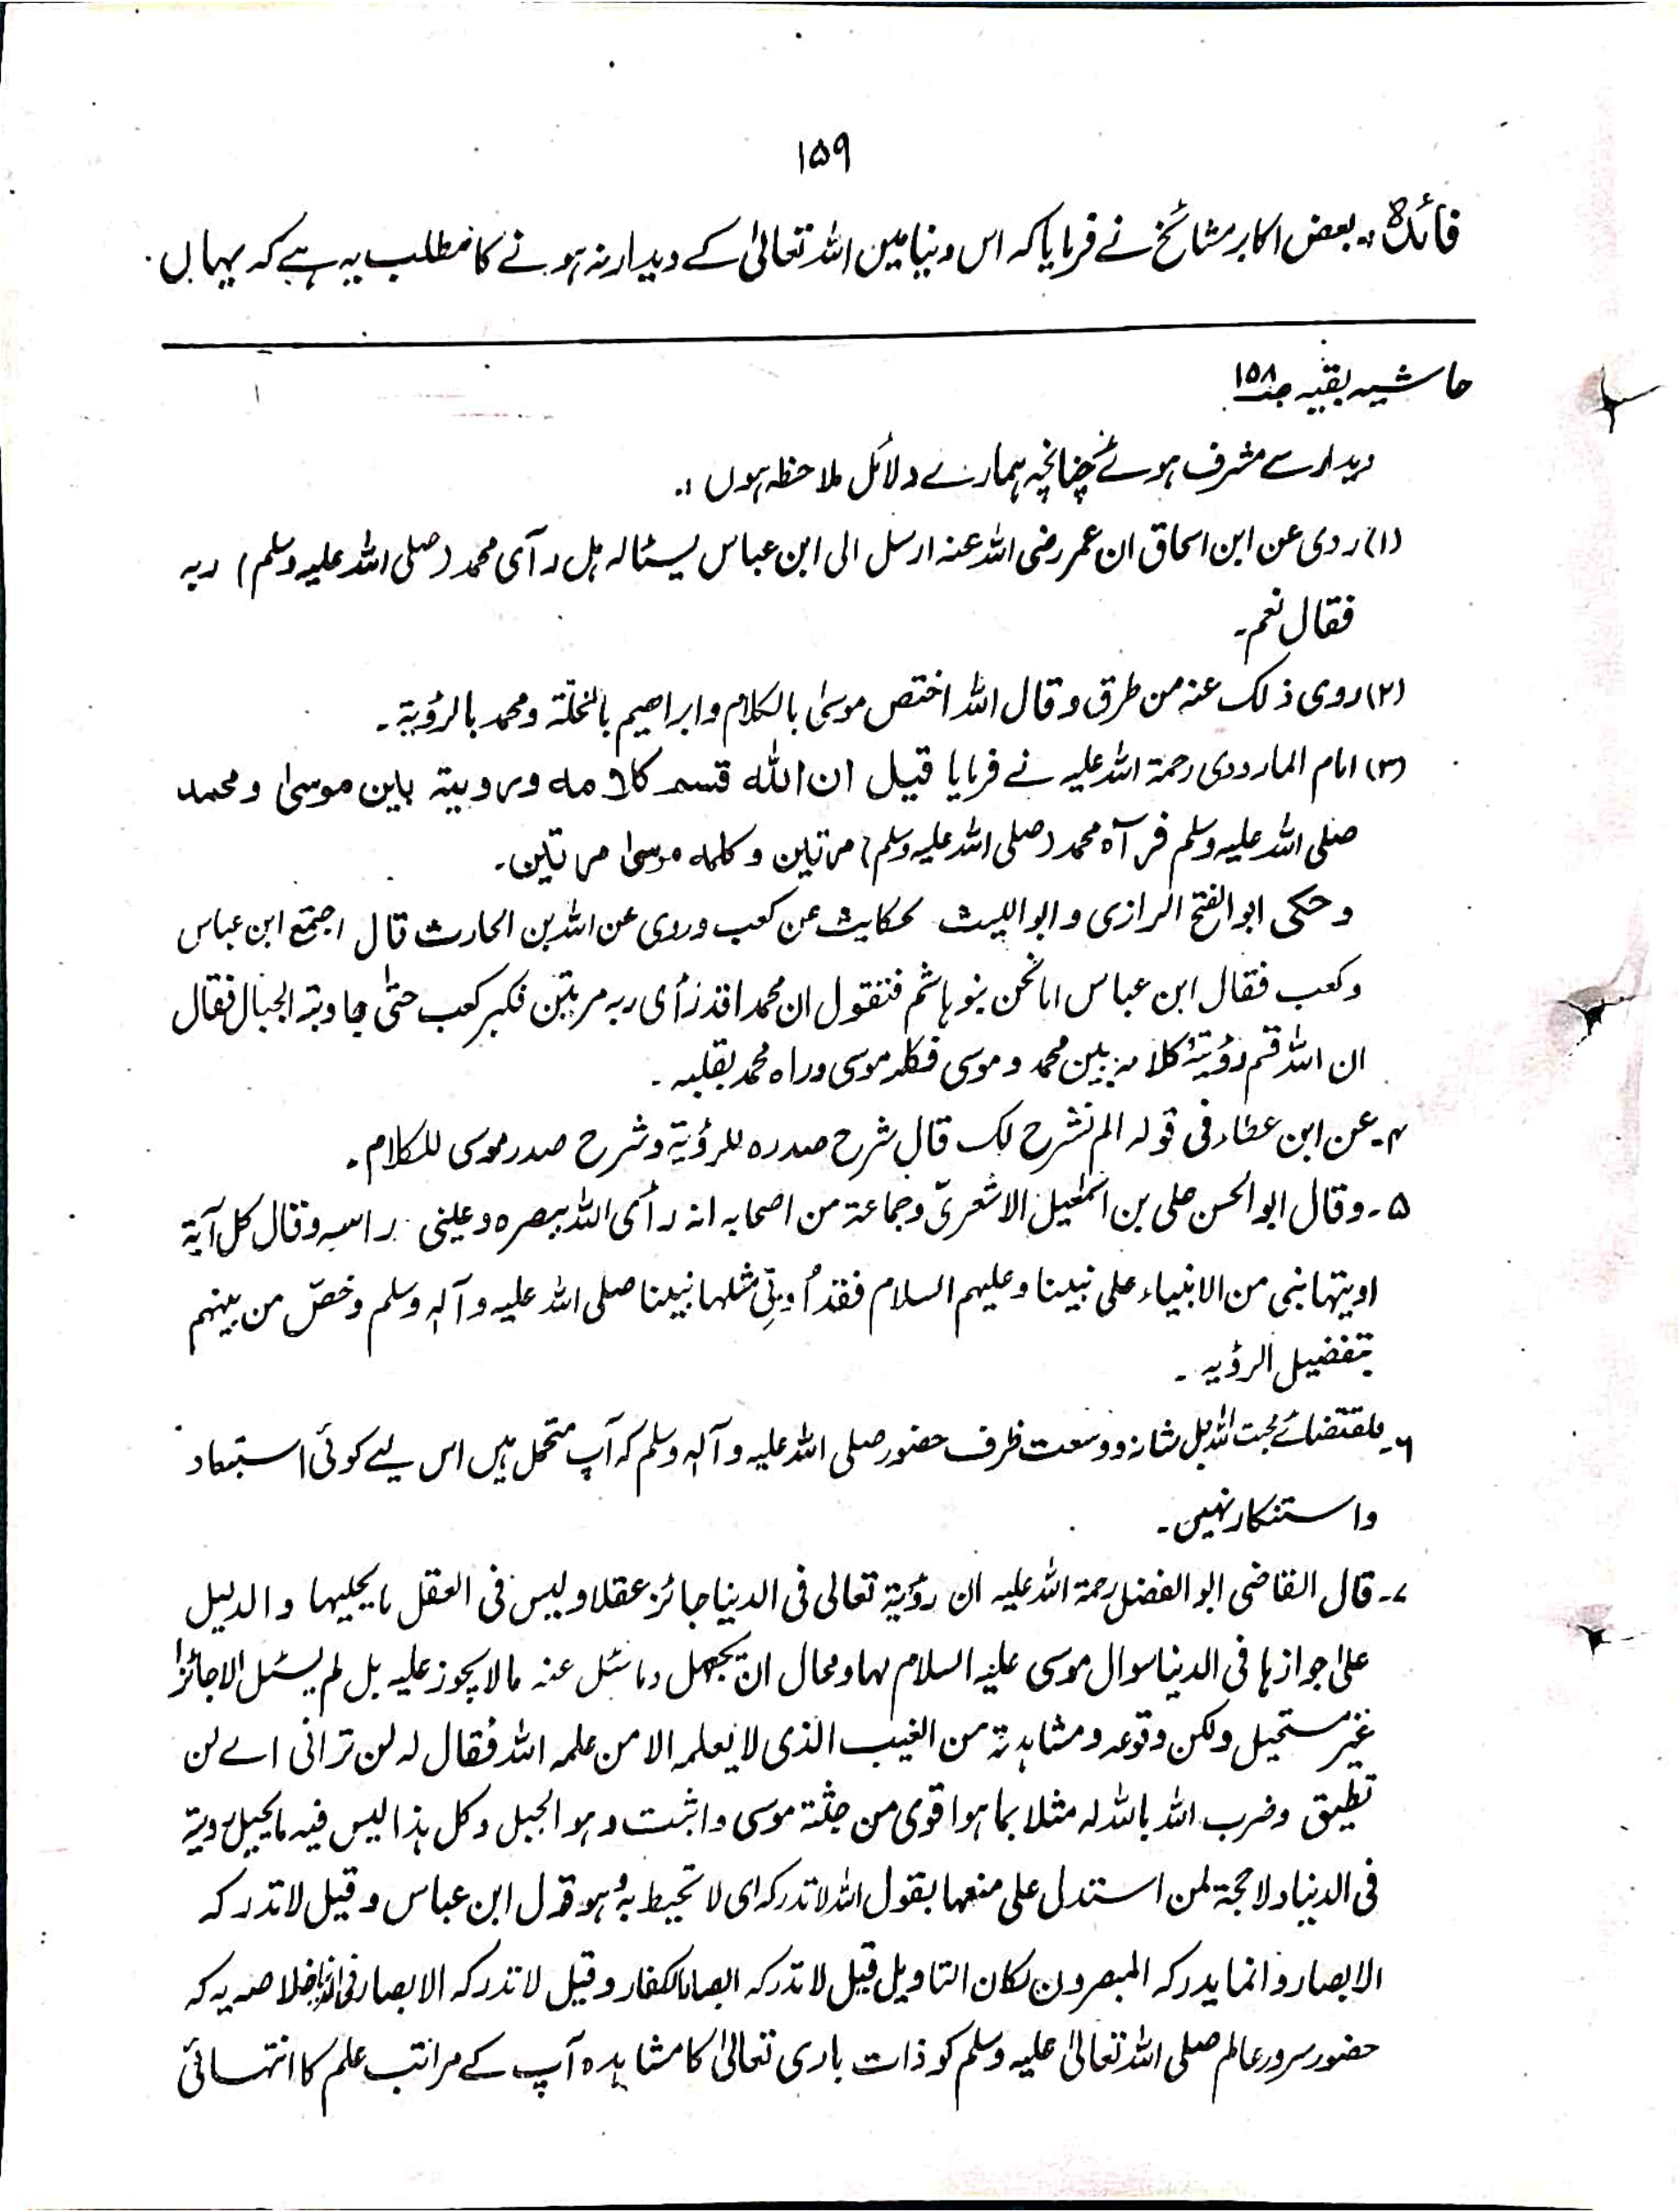 ۱۵۹
فائدہ :۔ بعض اکابر مشائخ نے فرمایا کہ اس دنیا میں اللہ تعالیٰ کے دیدار نہ ہونے کا مطلب یہ ہے کہ یہاں
حاشیہ بقیہ صـ۱۵۸
دیدار سے مشرف ہوئے چنانچہ ہمارے دلائل ملاحظہ ہوں :۔
(۱) روی عن ابن اسحاق ان عمر رضی اللہ عنہ ارسل الی ابن عباس یسئالہ ہل رآی محمد (صلی اللہ علیہ وسلم) ربہ
فقال نعم۔
(۲) روی ذلک عنہ من طرق وقال اللہ اختص موسیٰ بالکلام وابراھیم بالخلّۃ ومحمد بالرؤیۃ۔
(۳) امام الماروردی رحمۃ اللہ علیہ نے فرمایا قیل ان اللہ قسم کلامہ ورویۃ بین موسیٰ ومحمد
صلی اللہ علیہ وسلم فرآہ محمد (صلی اللہ علیہ وسلم) مرتین وکلمہ موسیٰ مرتین۔
وحکی ابوالفتح الرازی وابواللیث لحکایث عن کعب وروی عن اللہ بن الحارث قال اجتمع ابن عباس
وکعب فقال ابن عباس امانحن بنو ہاشم فنقول ان محمدا قدرأی ربہ مرتین فکبر کعب حتیٰ جاوبتہ الجبال فقال
ان اللہ قسم رؤیتہ کلامہ بین محمد وموسی فکلمہ موسی وراہ محمد بقلبہ۔
۴۔ عن ابن عطاء فی قولہ الم نشرح لک قال شرح صدرہ للرؤیۃ وشرح صدر موسی للکلام۔
۵۔ وقال ابوالحسن علی بن اسمٰعیل الاشعریّ وجماعۃ من اصحابہ انہ رأی اللہ ببصرہ وعینی راسہ وقال کل آیۃ
اویتہا نبی من الانبیاء علی نبینا وعلیہم السلام فقد اُوتِیَ مثلہا نبینا صلی اللہ علیہ وآلہٖ وسلم وخصّ من بینہم
بتفضیل الرؤیہ۔
۶۔ بلقتضائے محبت اللہ جل شانہ ووسعت ظرف حضور صلی اللہ علیہ وآلہٖ وسلم کہ آپ متحمل ہیں اس لیے کوئی استبعاد
واستنکار نہیں۔
۷۔ قال القاضی ابوالفضل رحمۃ اللہ علیہ ان رؤیۃ تعالی فی الدنیا جائز عقلا ولیس فی العقل مایحیلہا والدلیل
علیٰ جوازہا فی الدنیا سوال موسی علیہ السلام لہا ومحال ان یجہل وماسئل عنہ مالایجوز علیہ بل لم یسئل الاجائزا
غیر مستحیل ولکن وقوعہ ومشاہدتہ من الغیب الذی لایعلمہ الا من علمہ اللہ فقال لہ لن ترانی اے لن
تطیق وضرب اللہ باللہ لہ مثلا بما ہوا قوی من جثتہ موسی واثبت وہو الجبل وکل ہذا لیس فیہ مایحیل رویۃ
فی الدنیا ولاحجۃ لمن استدل علی منعہا بقول اللہ لاتدرکہ ای لاتحیط بہٖ وہو قول ابن عباس وقیل لاتدرکہ
الابصار وانما یدرکہ المبصرون لکان التاویل قیل لاتدرکہ ابصار الکفار وقیل لاتدرکہ الابصار فی الدنیا خلاصہ یہ کہ
حضور سرور عالم صلی اللہ تعالیٰ علیہ وسلم کو ذات باری تعالیٰ کا مشاہدہ آپ کے مراتب علم کا انتہائی